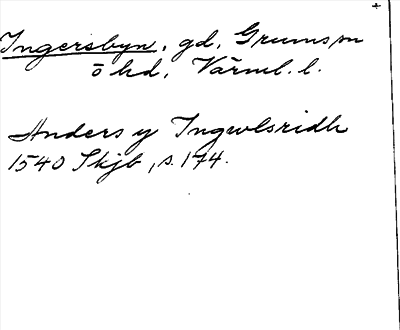 Ingersbyn, gd, Grums sn
ö hd, Värml. l.
Anders y Ingwlsridh
1540 Skjb, s. 174.